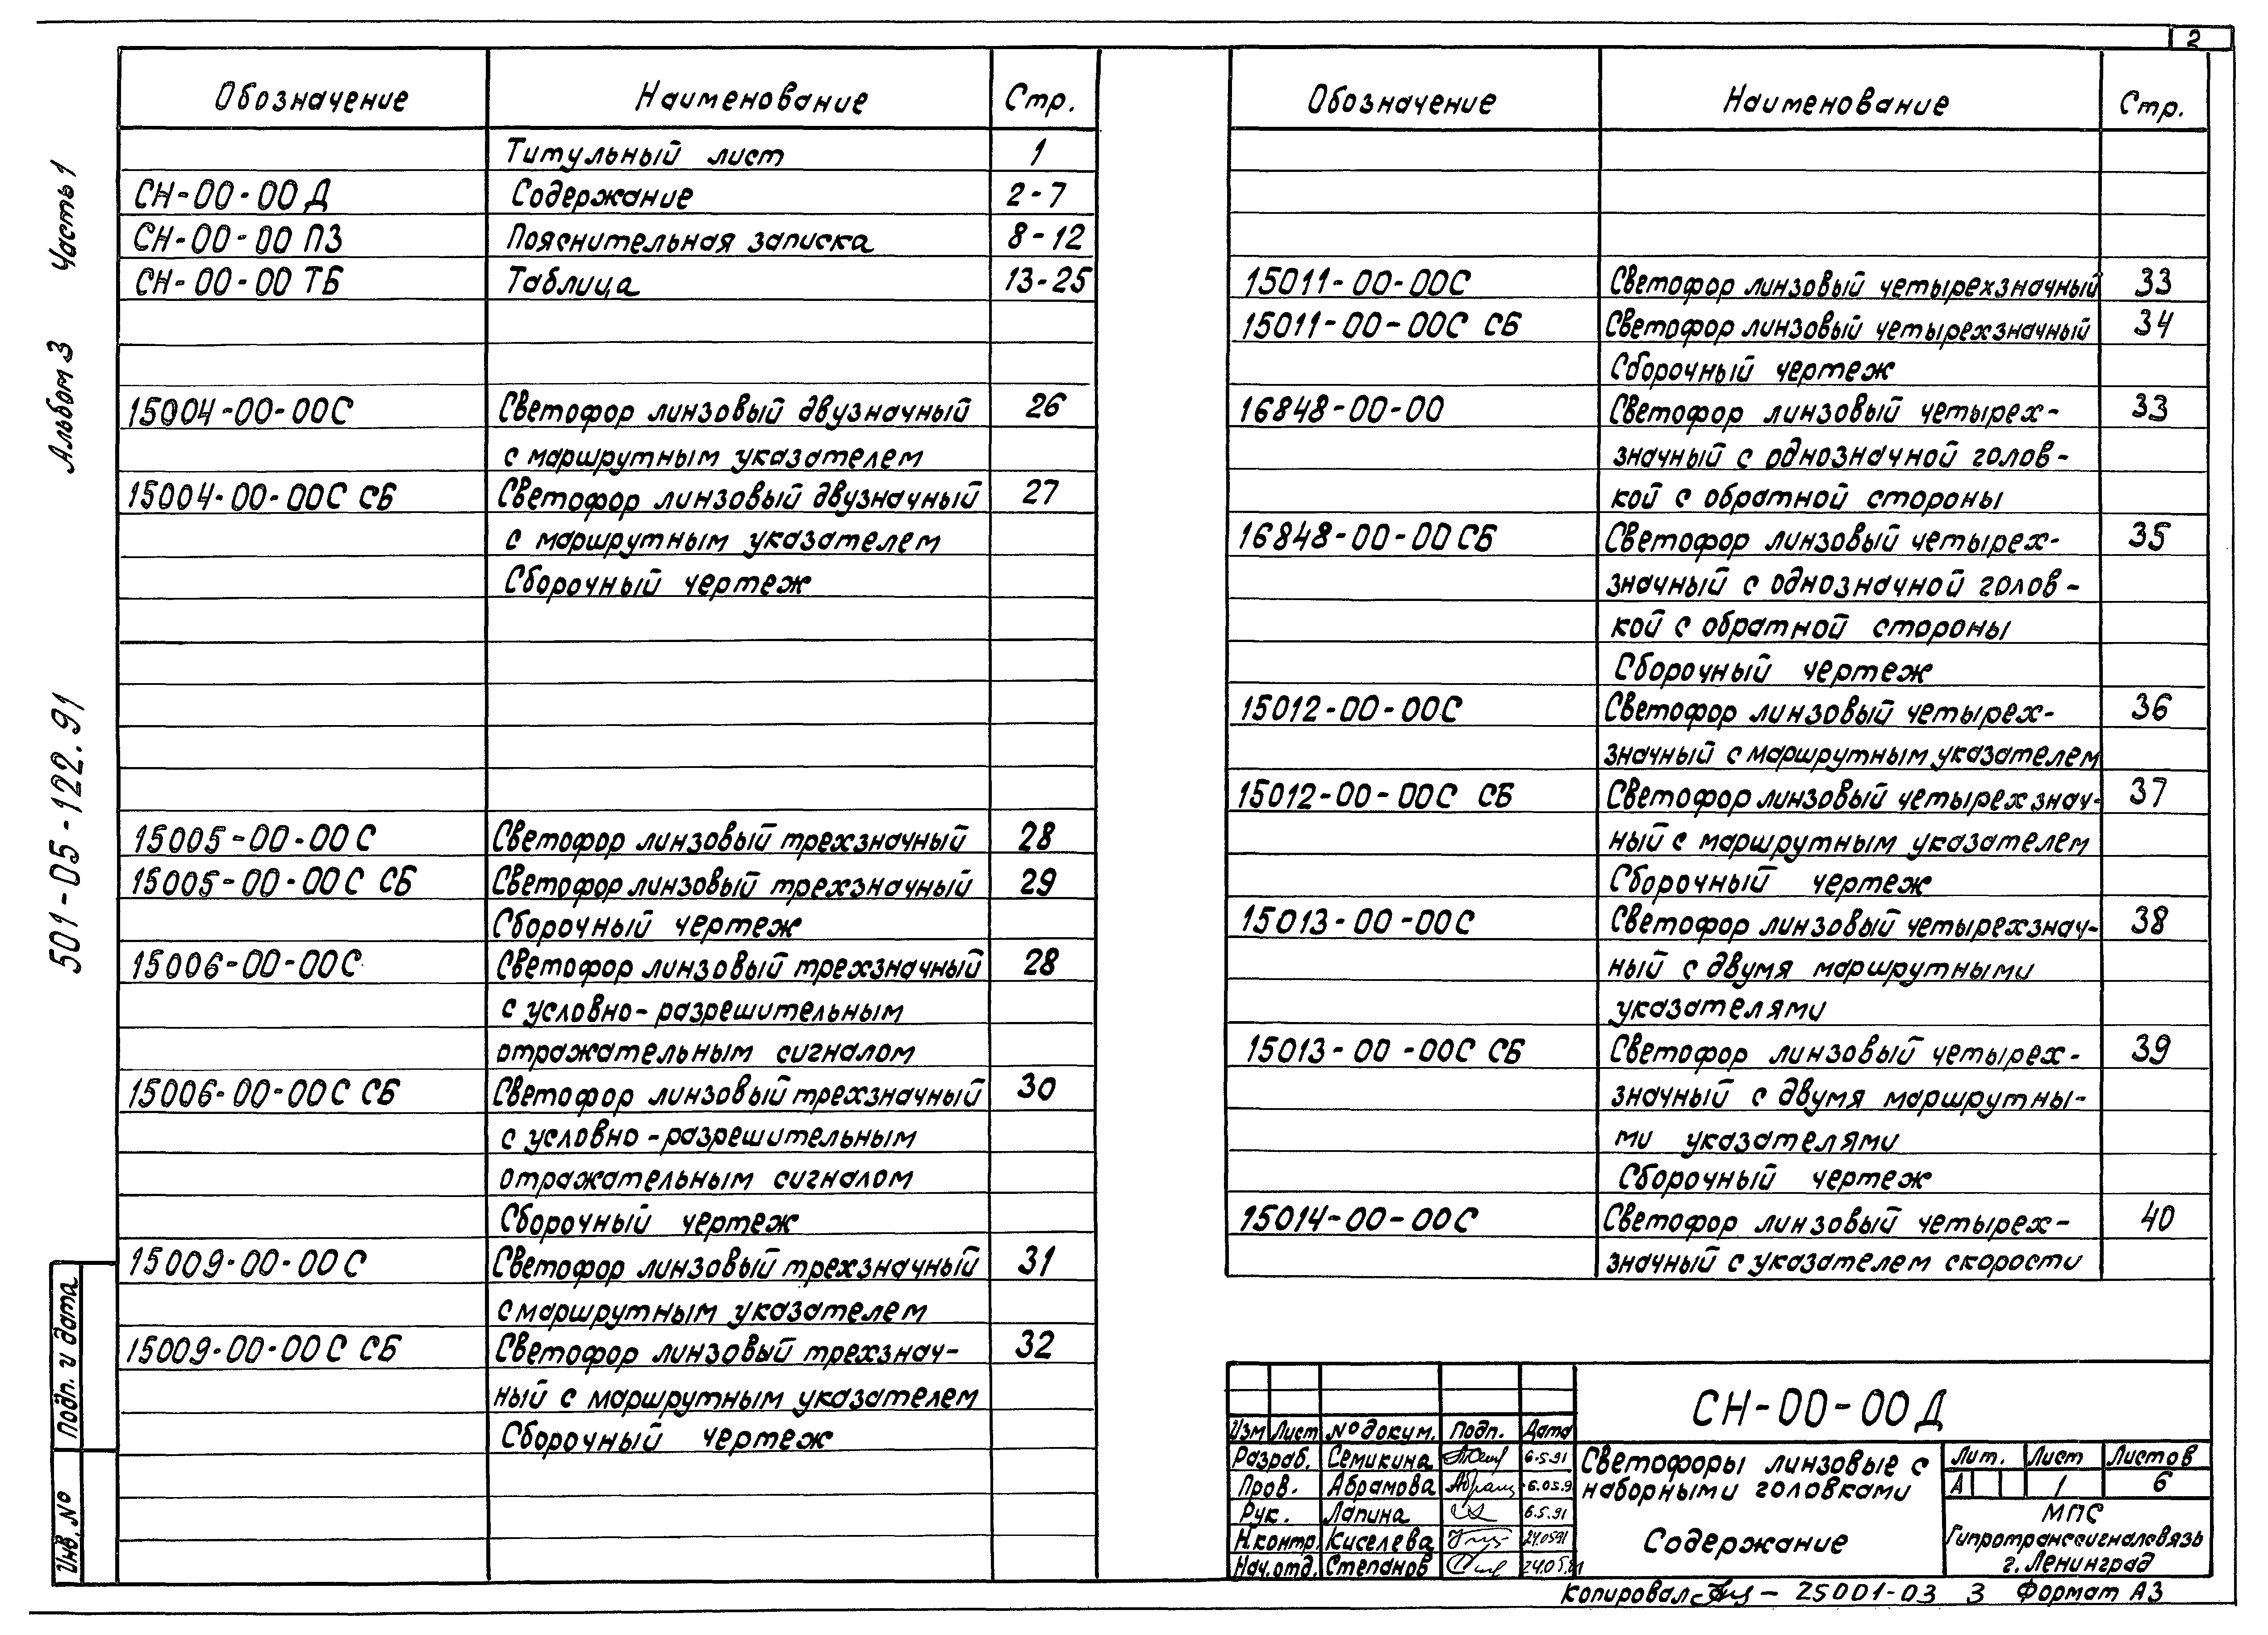 2
Часть 1
Альбом 3
501-05-122.91
Обозначение Наименование Стр.
Титульный лист 1
СН-00-00 Д Содержание 2-7
СН-00-00 ПЗ Пояснительная записка 8-12
СН-00-00 ТБ Таблица 13-25
15004-00-00С Светофор линзовый двузначный 26
с маршрутным указателем
15004-00-00С СБ Светофор линзовый двузначный 27
с маршрутным указателем
Сборочный чертеж
15005-00-00С Светофор линзовый трехзначный 28
15005-00-00С СБ Светофор линзовый трехзначный 29
Сборочный чертеж
15006-00-00С Светофор линзовый трехзначный 28
с условно-разрешительным
отражательным сигналом
15006-00-00С СБ Светофор линзовый трехзначный 30
с условно-разрешительным
отражательным сигналом
Сборочный чертеж
15009-00-00С Светофор линзовый трехзначный 31
с маршрутным указателем
15009-00-00С СБ Светофор линзовый трехзнач- 32
ный с маршрутным указателем
Сборочный чертеж
Обозначение Наименование Стр.
15011-00-00С Светофор линзовый четырехзначный 33
15011-00-00С СБ Светофор линзовый четырехзначный 34
Сборочный чертеж
16848-00-00 Светофор линзовый четырех- 33
значный с однозначной голов-
кой с обратной стороны
16848-00-00СБ Светофор линзовый четырех- 35
значный с однозначной голов-
кой с обратной стороны
Сборочный чертеж
15012-00-00С Светофор линзовый четырех- 36
значный с маршрутным указателем
15012-00-00С СБ Светофор линзовый четырехзнач- 37
ный с маршрутным указателем
Сборочный чертеж
15013-00-00С Светофор линзовый четырехзнач- 38
ный с двумя маршрутными
указателями
15013-00-00С СБ Светофор линзовый четырех- 39
значный с двумя маршрутны-
ми указателями
Сборочный чертеж
15014-00-00С Светофор линзовый четырех- 40
значный с указателем скорости
Подп. и дата
Инв. №
СН-00-00 Д
Изм Лист № докум. Подп. Дата
Разраб. Семикина 6.5.91
Пров. Абрамова 6.05.9
Рук. Лапина 6.5.91
Н.контр. Киселева 24.0591
Нач.отд. Степанов
Светофоры линзовые с
наборными головками
Содержание
Лит. Лист Листов
А 1 6
МПС
Гипротранссигналсвязь
г. Ленинград
Копировал – 25001-03 3 Формат А3